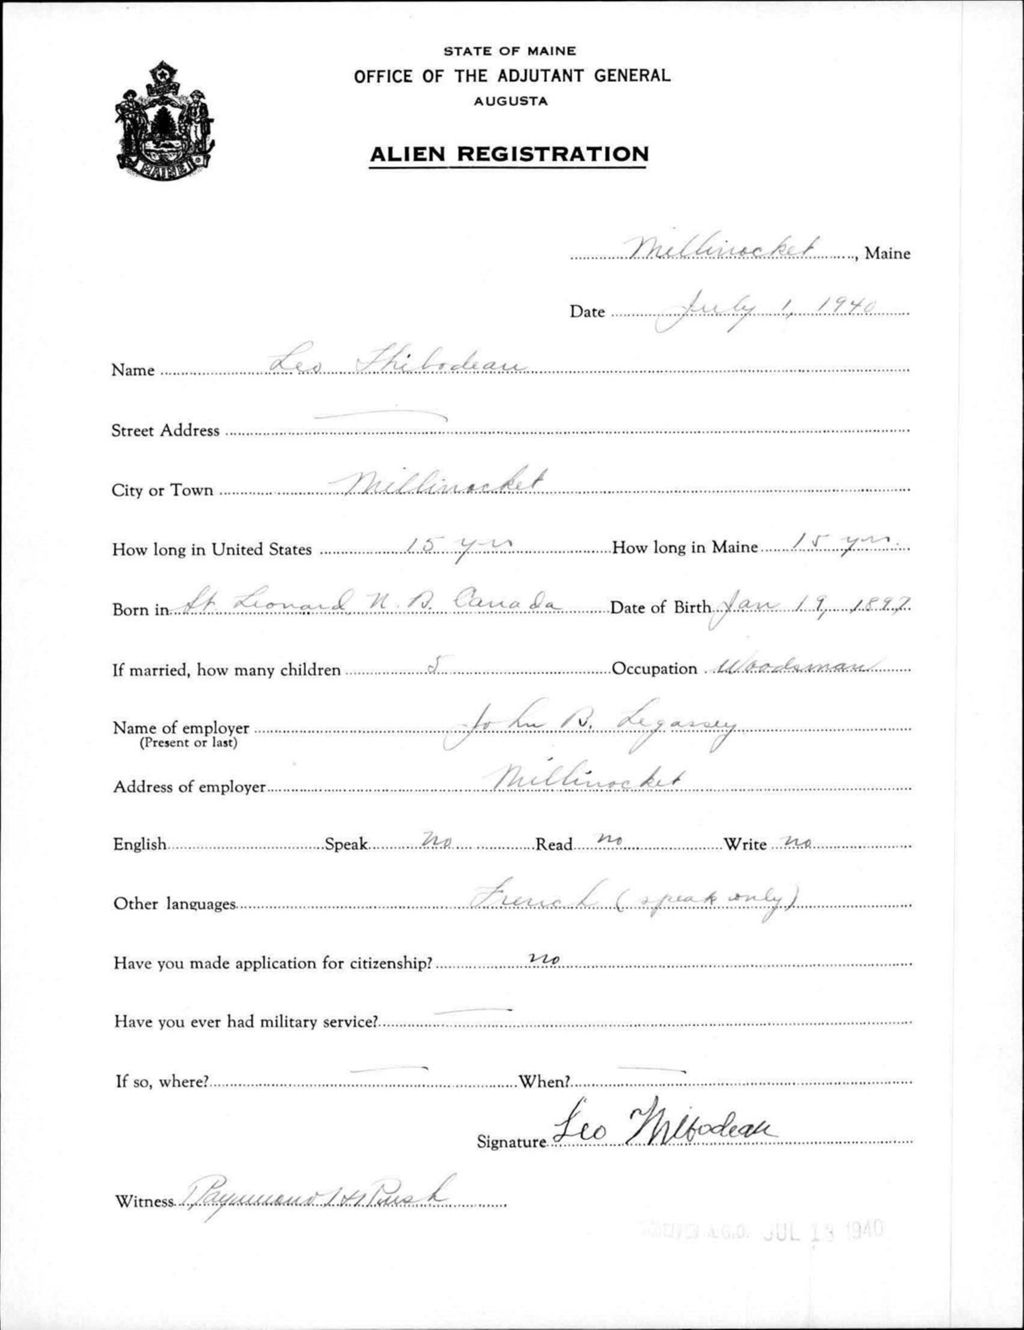 STATE OF MAINE
OFFICE OF THE ADJUTANT GENERAL
AUGUSTA
ALIEN REGISTRATION
MAINE
Millinocket, Maine
Date July 1, 1940
Name Leo Thibodeau
Street Address —
City or Town Millinocket
How long in United States 15 yrs How long in Maine 15 yrs.
Born in St Leonard N. B. Canada Date of Birth Jan 19, 1897
If married, how many children 5 Occupation Woodsman
Name of employer John B. Legassey
(Present or last)
Address of employer Millinocket
English Speak no Read no Write no
Other languages French (speak only)
Have you made application for citizenship? no
Have you ever had military service? —
If so, where? — When? —
Signature Leo Thibodeau
Witness Raymond H Rush
A.G.O. JUL 13 1940